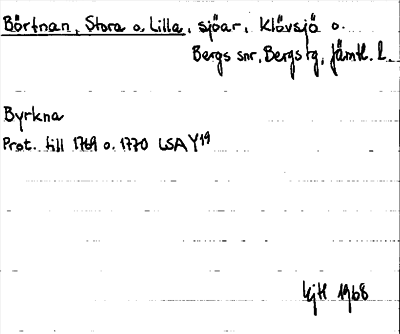 Börtnan, Stora o. Lilla, sjöar, Klövsjö o.
Bergs snr, Bergs tg, Jämtl. l.
Byrkna
Prot. till 1769 o. 1770 LSA Y19
1968